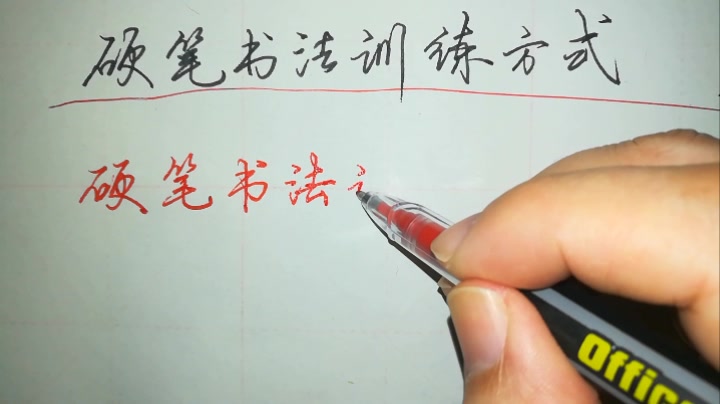 硬笔书法训练方式
硬笔书法
Office